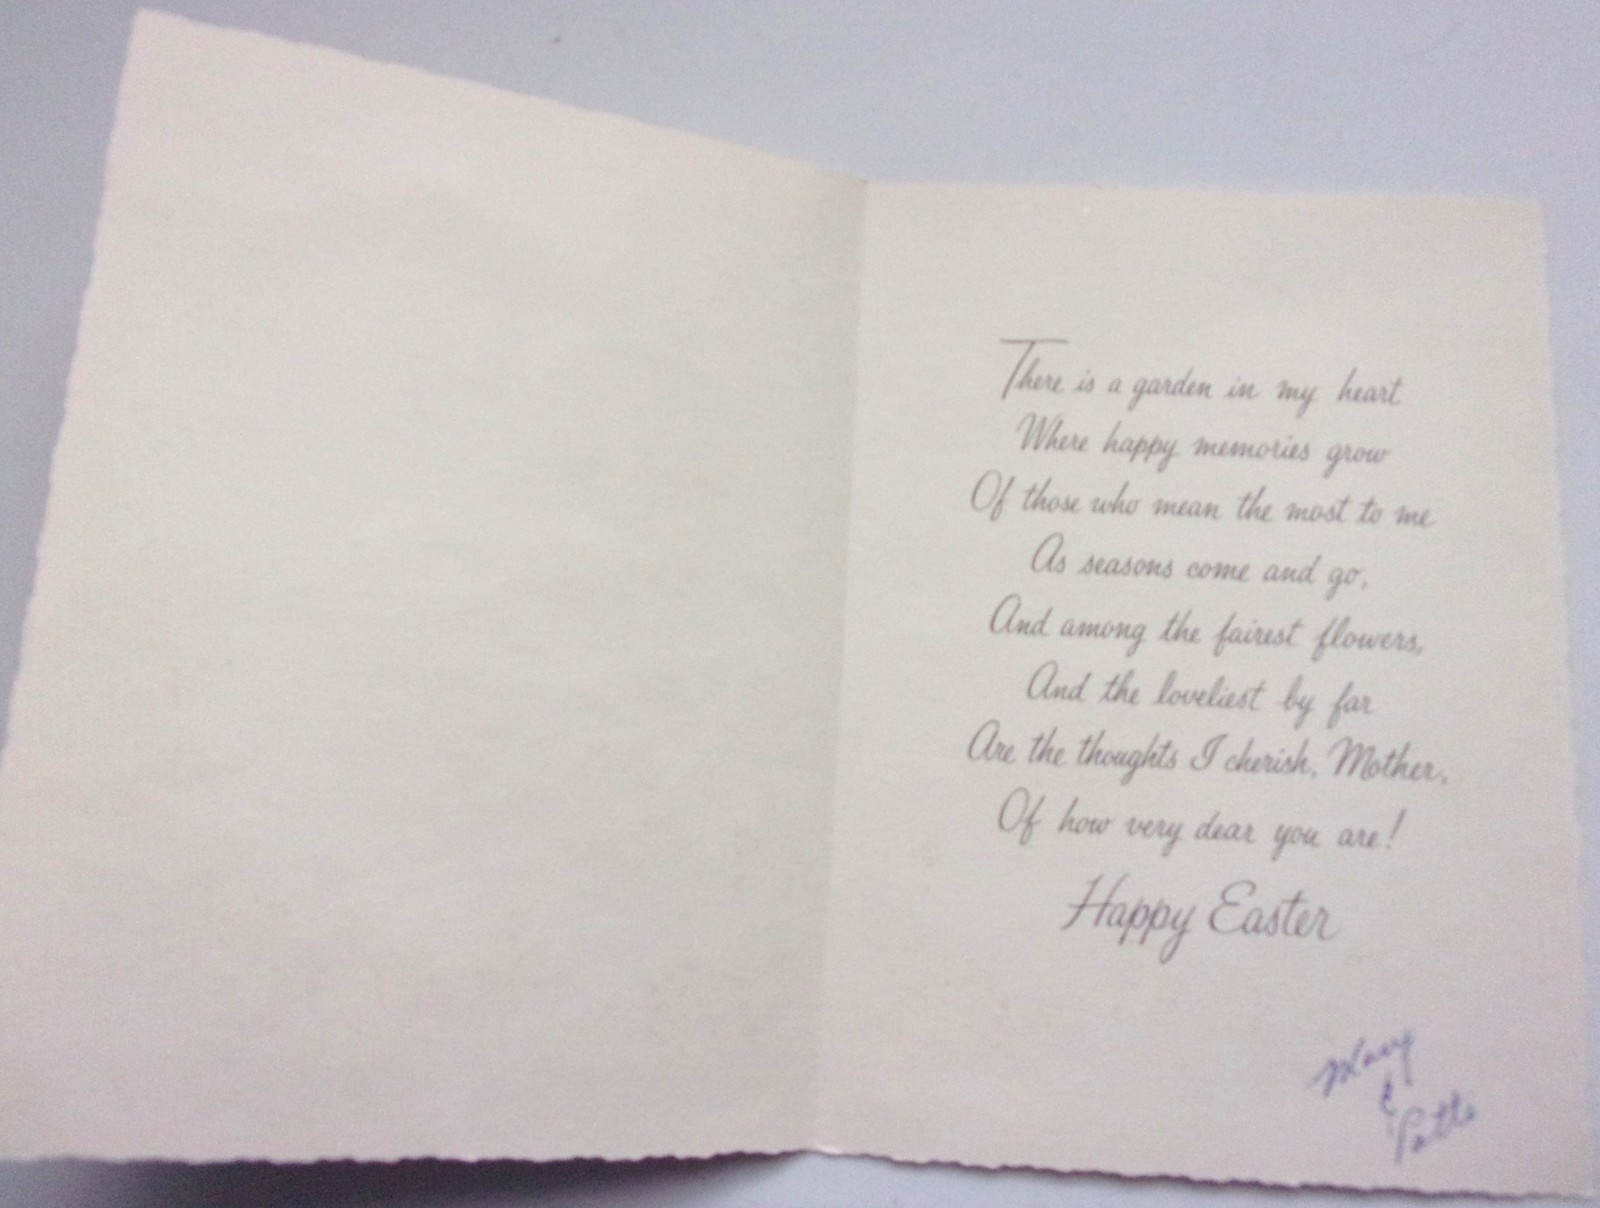 There is a garden in my heart
Where happy memories grow
Of those who mean the most to me
As seasons come and go,
And among the fairest flowers,
And the loveliest by far
Are the thoughts I cherish, Mother,
Of how very dear you are!
Happy Easter
Mary
&